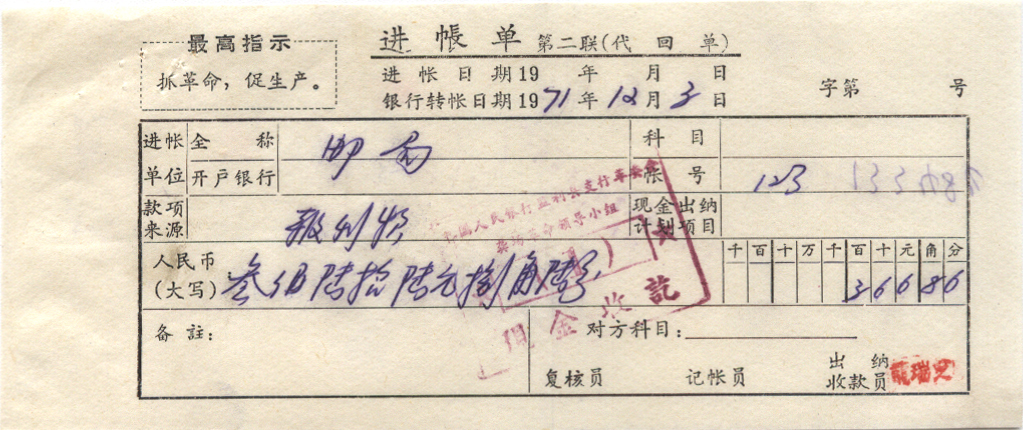 最高指示
抓革命，促生产。
进帐单 第二联(代回单)
进帐日期19 年 月 日
银行转帐日期1971年12月3日
字第 号
进帐单位 全称 邮局 科目
开户银行 帐号 123
款项来源 报刊费 现金出纳计划项目
人民币(大写) 叁佰陆拾陆元捌角陆分
千百十万千百十元角分
36686
中国人民银行监利县支行革委会
革命领导小组
现金收讫
备註: 对方科目:
复核员 记帐员 出纳收款员